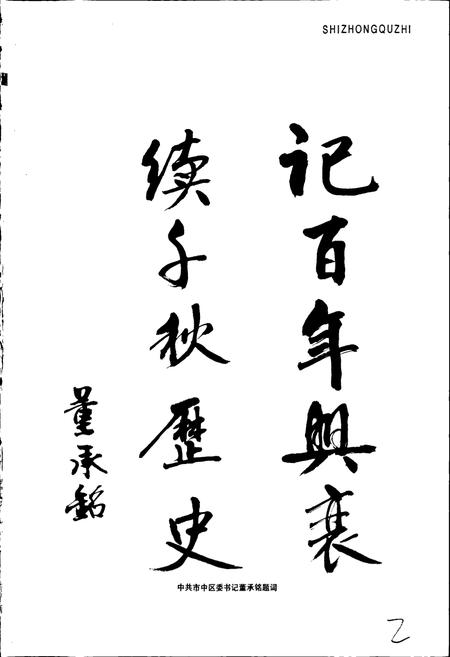 SHIZHONGQUZHI
记百年興衰
续千秋歷史
董承銘
中共市中区委书记董承铭题词
2